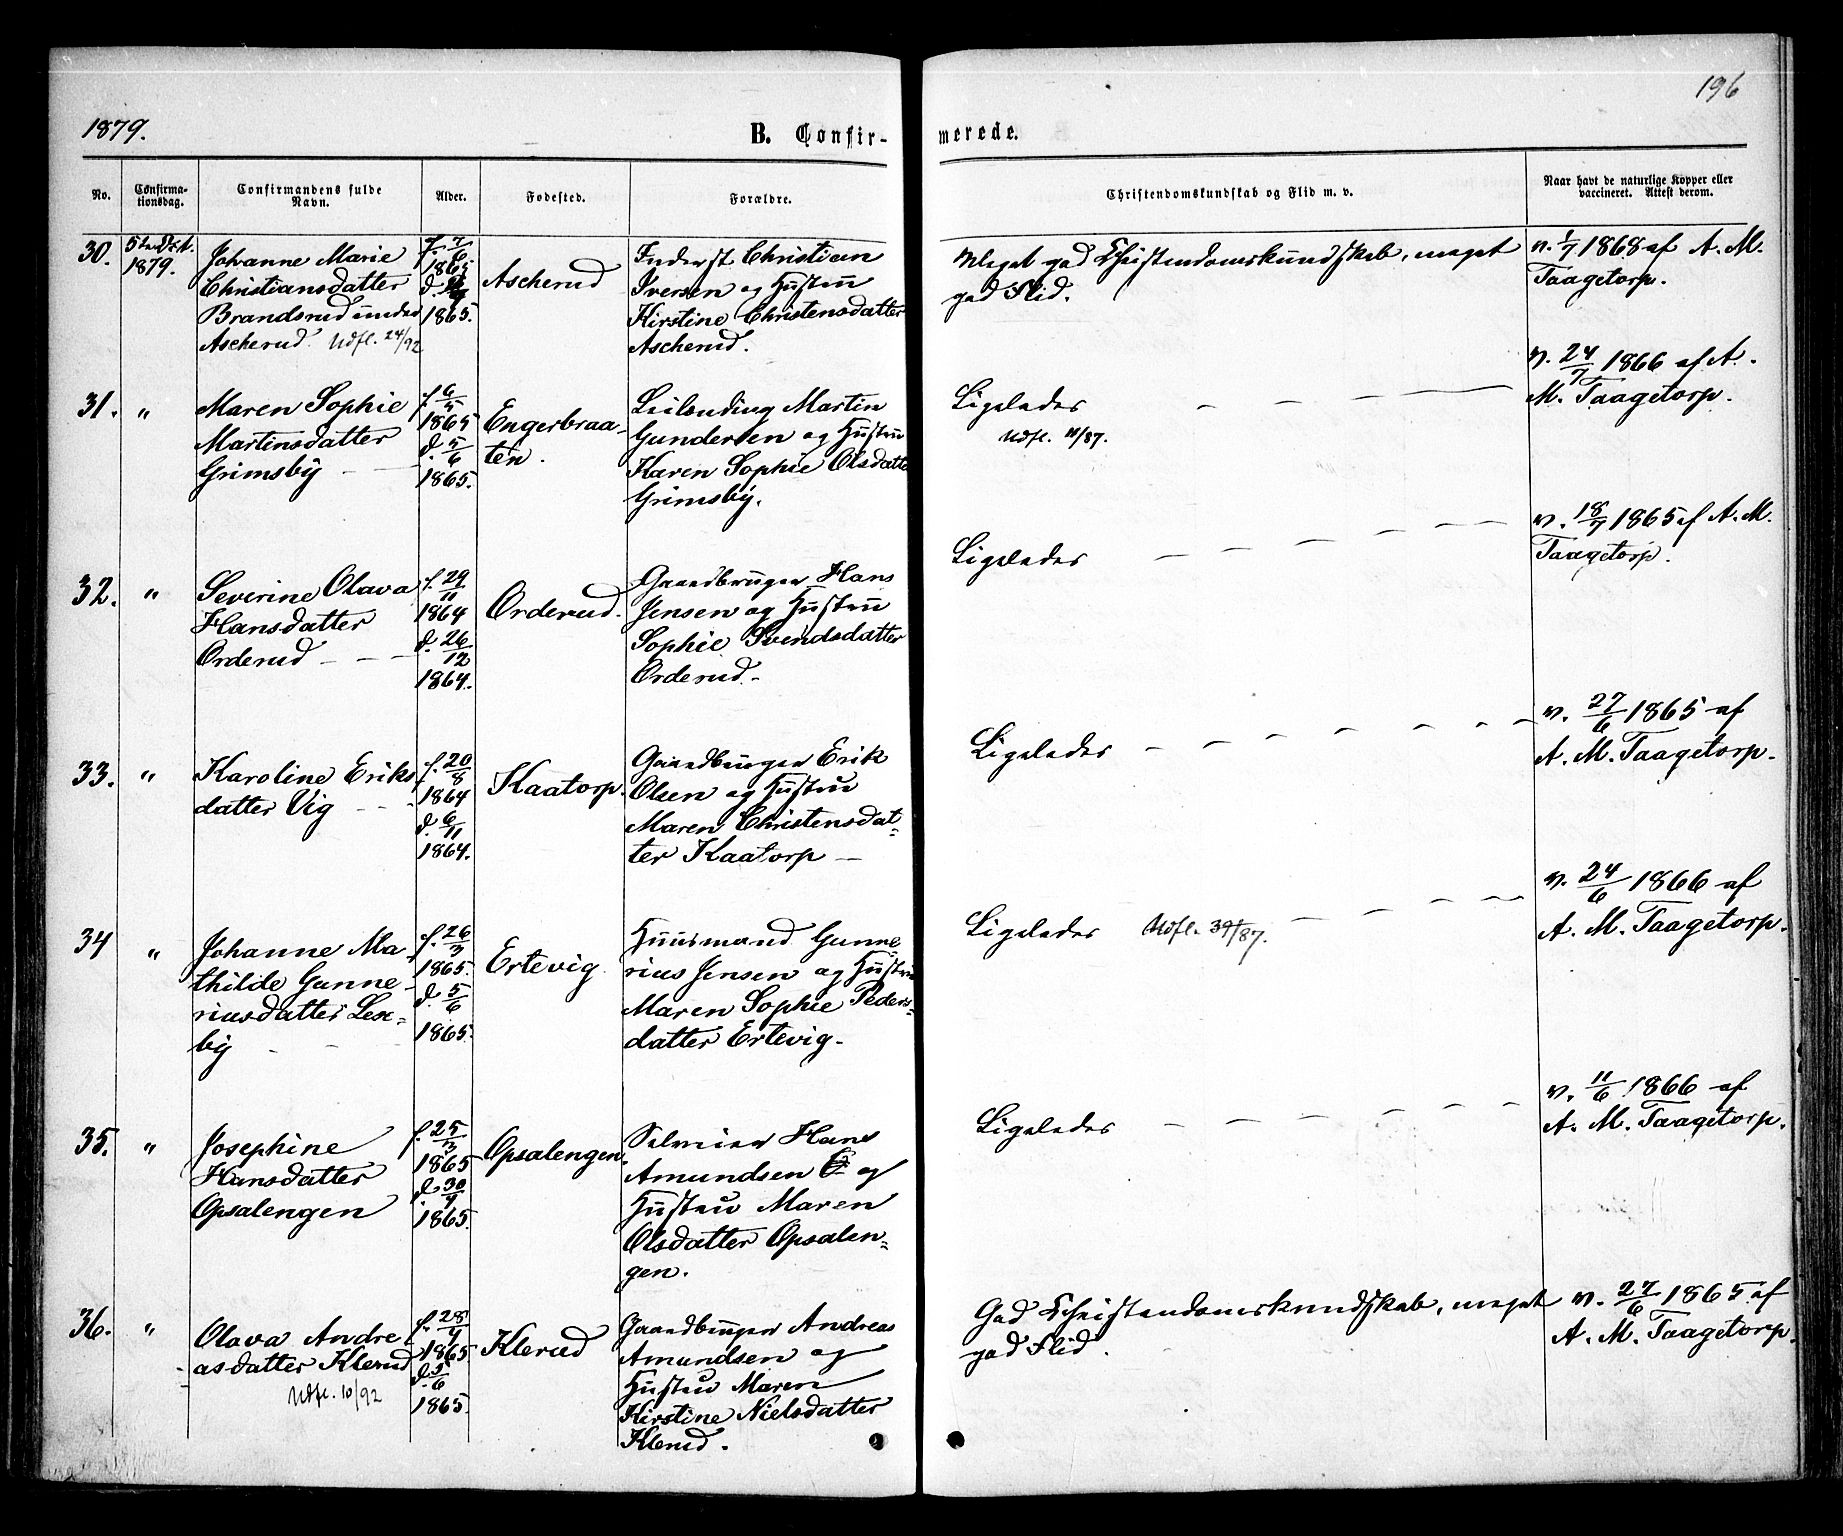 196
1879.
B. Confir- merede.
No.
Confirma-
tionsdag.
Confirmandens fulde
Navn.
Alder.
Fødested.
Forældre.
Christendomskundskab og Flid m. v.
Naar havt de naturlige Kopper eller
vaccineret. Attest derom.
30.
5te Oct.
1879.
Johanne Marie
Christiansdatter
Brandsrud under
Ascherud. Udfl. 24/92
f. 7/6
1865
d.
1865.
Ascherud
Inderst Christian
Iversen og Hustru
Kirstine Christensdatter
Ascherud.
Meget god Christendomskundskab, meget
god Flid.
v. 1/7 1868 af A. M.
Taagetorp.
31.
"
Maren Sophie
Martinsdatter
Grimsby —
f. 6/5
1865
d. 5/6
1865.
Engerbraa-
ten.
Leilending Martin
Gundersen og Hustru
Karen Sophie Olsdatter
Grimsby.
Ligeledes — — — —
Udfl. 11/87.
v. 24/7 1866 af A.
M. Taagetorp.
32.
"
Severine Olava
Hansdatter
Orderud — — —
f. 29/11
1864
d. 26/12
1864.
Orderud.
Gaardbruger Hans
Jensen og Hustru
Sophie Svendsdatter
Orderud.
Ligeledes — — — — — —
v. 18/7 1865 af A. M.
Taagetorp.
33.
"
Karoline Eriks
datter Vig — —
f. 20/8
1864
d. 6/11
1864.
Kaatorp.
Gaardbruger Erik
Olsen og Hustru
Maren Christensdat-
ter Kaatorp —
Ligeledes — — — — — — —
v. 27/6 1865 af
A. M. Taagetorp.
34
"
Johanne Ma-
thilde Gunne-
riusdatter Lex-
by — — —
f. 26/3
1865.
d. 5/6
1865.
Ertevig.
Huusmand Gunne-
rius Jensen og Hustru
Maren Sophie Peders-
datter Ertevig.
Ligeledes Udfl. 39/87. — — — —
v. 24/6 1866 af
A. M. Taagetorp.
35.
"
Josephine
Hansdatter
Opsalengen
f. 25/3
1865
d. 30/4
1865.
Opsalengen.
Selveier Hans
Amundsen og
Hustru Maren
Olsdatter Opsalen-
gen.
Ligeledes — — — — — —
v. 11/6 1866 af
A. M. Taagetorp.
36.
"
Olava Andre-
asdatter Klerud
Udfl. 10/92
f. 28/4
1865
d. 5/6
1865.
Klerud
Gaardbruger Andreas
Amundsen og
Hustru Maren
Kirstine Nielsdatter
Klerud.
God Christendomskundskab, meget
god Flid.
v. 27/6 1865 af
A. M. Taagetorp.